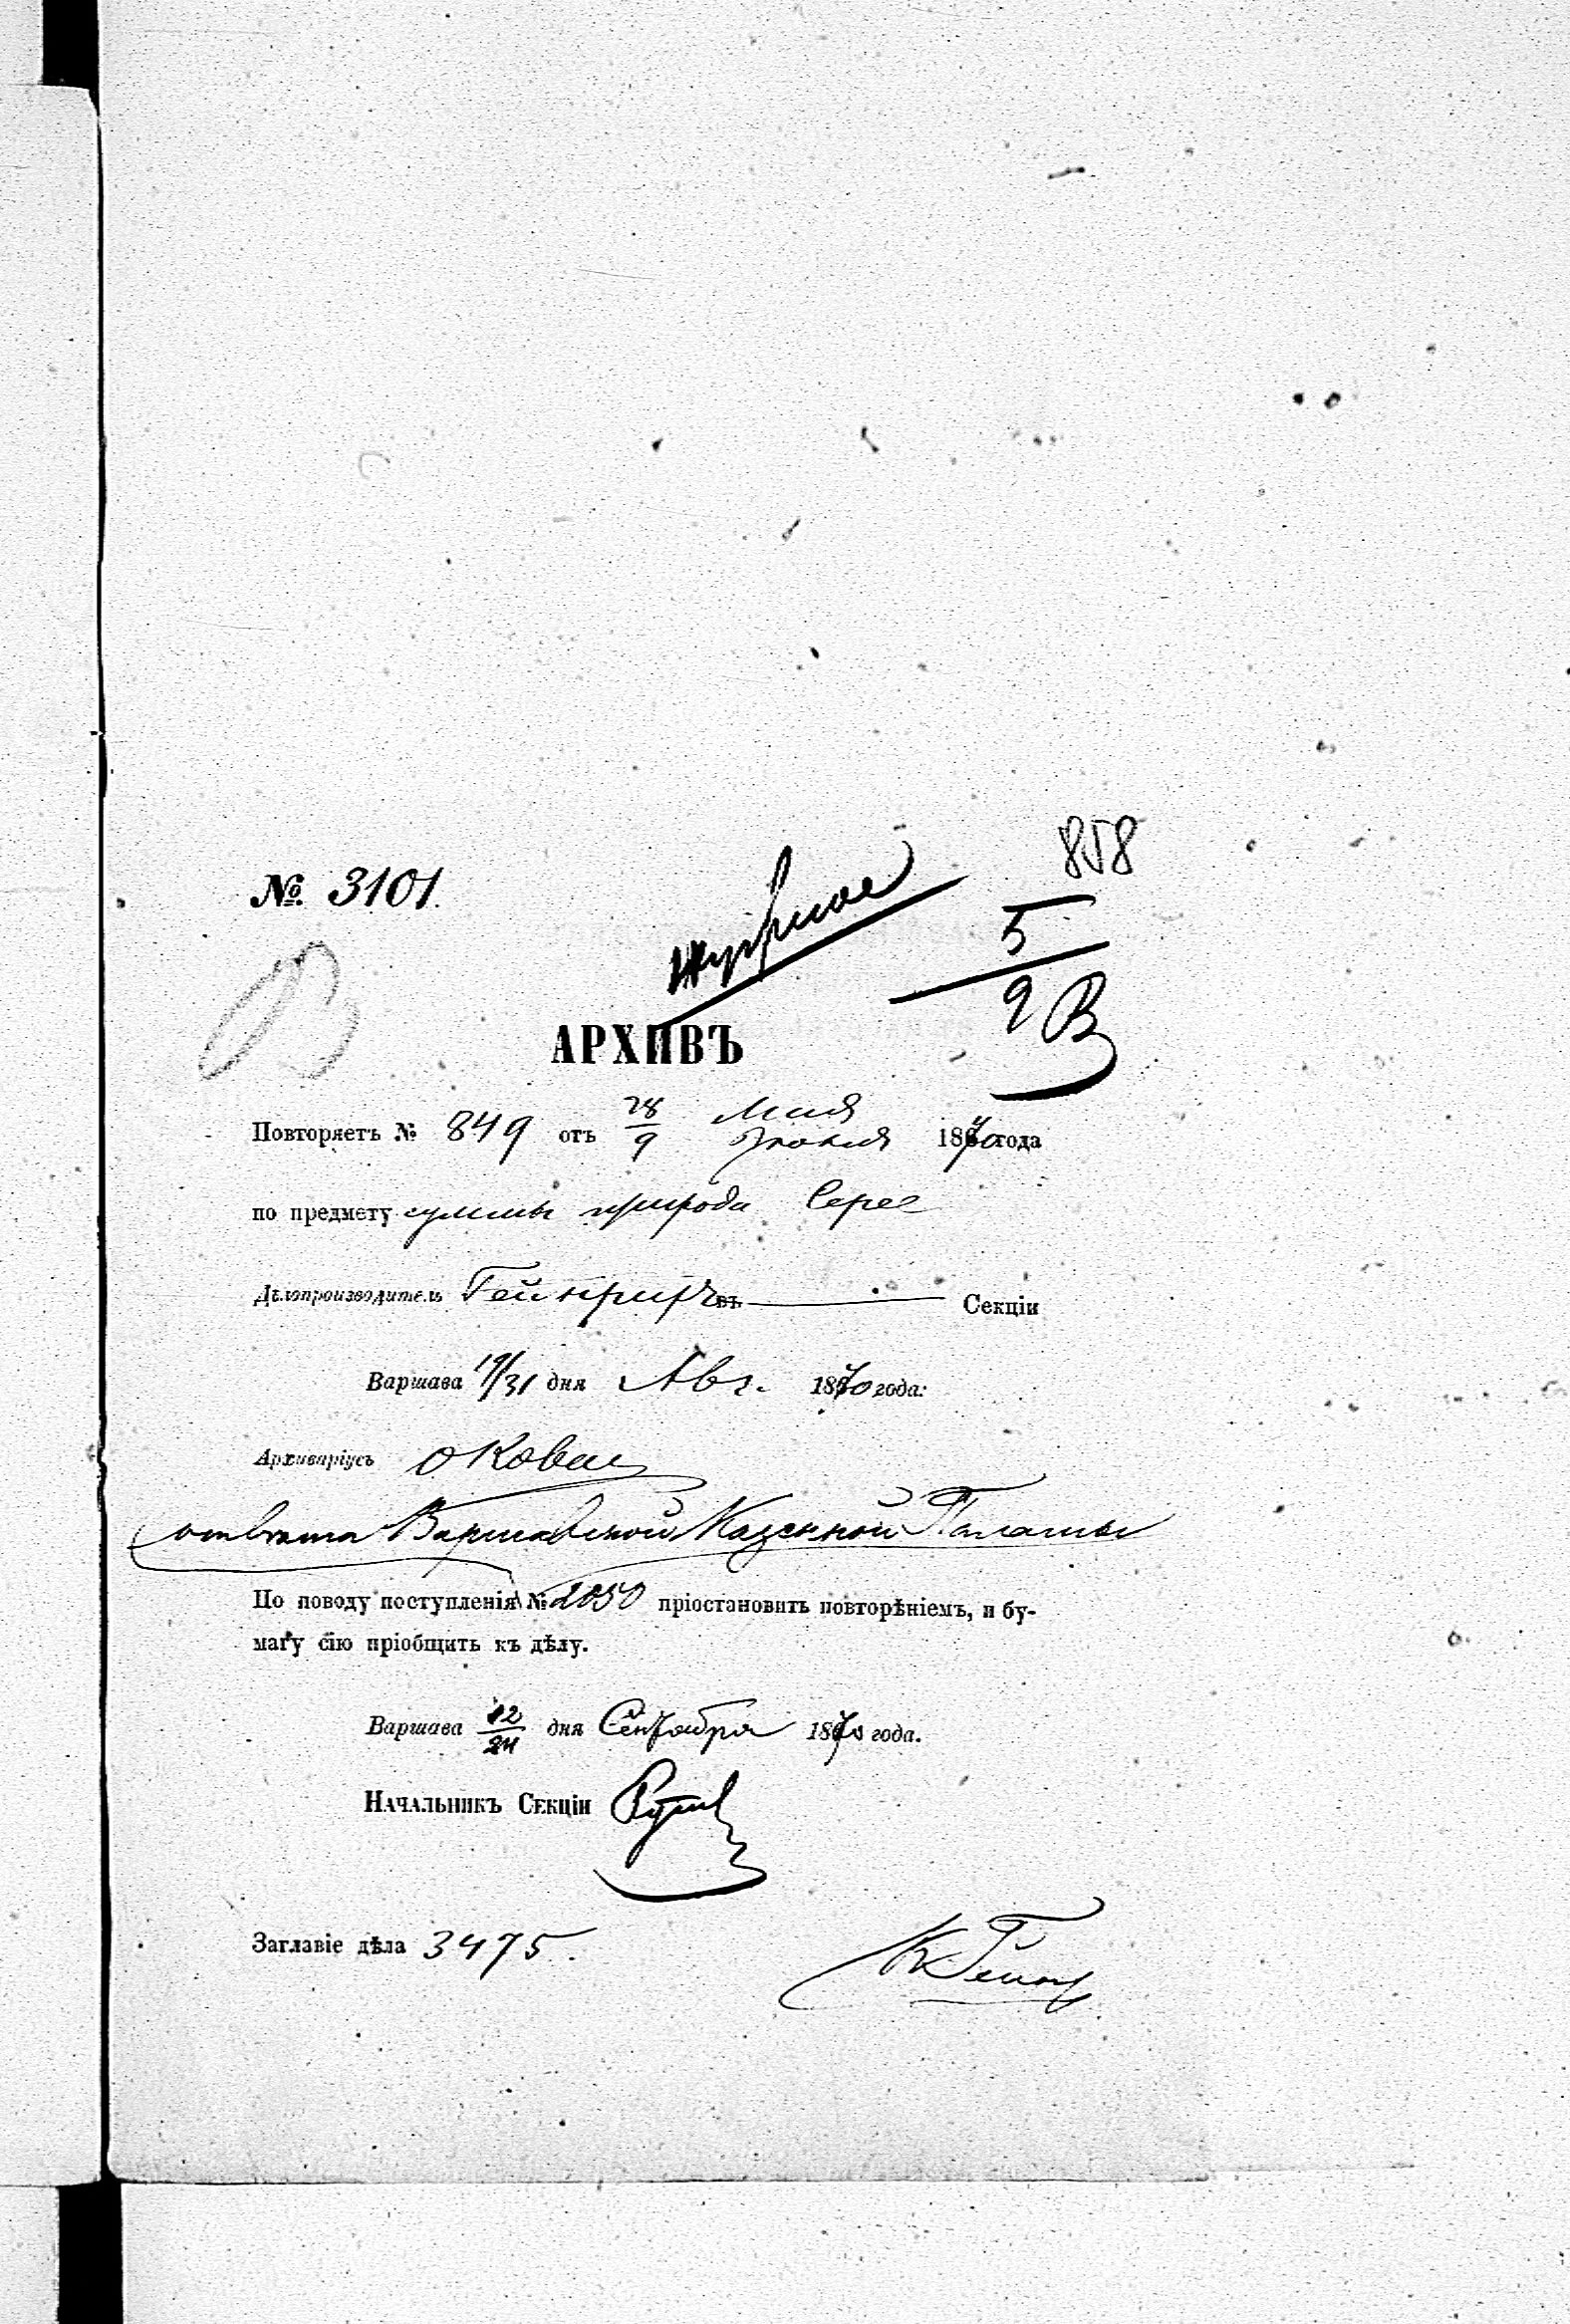 858
№ 3101.
5
9 В
АРХИВЪ
Повторяетъ № 849 отъ 28/9 Мая Іюня 1870 года
по предмету суммы прихода
Дѣлопроизводитель Гейнрихъ въ — Секціи
Варшава 19/31 дня Авг. 1870 года:
Архиваріусъ
отвѣта Варшавской Казенной Палаты
По поводу поступленія № 2050 пріостановить повторѣніемъ, и бу-
магу сію пріобщить къ дѣлу.
Варшава 12/24 дня Сентября 1870 года.
Начальникъ Секціи
Заглавіе дѣла 3475.